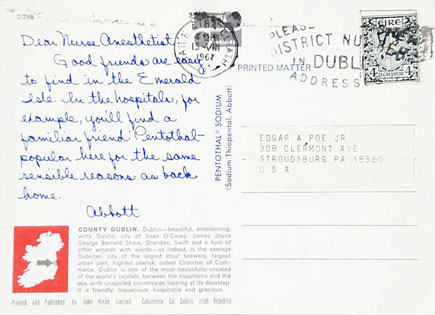 2/298
BAILE ÁTHA CLIATH
1967
PLEASE
DISTRICT NU
IN DUBLIN
ADDRESS
ÉIRE
PRINTED MATTER
Dear Nurse Anesthetist
Good friends are easy
to find in the Emerald
Isle. In the hospitals, for
example, you'll find a
familiar friend: Pentothal-
popular here for the same
sensible reasons as back
home.
Abbott
PENTOTHAL® SODIUM
(Sodium Thiopental, Abbott)
EDGAR A POE JR
308 CLERMONT AVE
STROUDSBURG PA 18360
U S A
COUNTY DUBLIN. Dublin—beautiful, entertaining,
witty Dublin, city of Sean O'Casey, James Joyce
George Bernard Shaw, Sheridan, Swift and a host of
other wizards with words—as indeed, is the average
Dubliner; city of the largest stout brewery, largest
urban park, highest obelisk, oldest Chamber of Com-
merce. Dublin is one of the most beautifully-situated
of the world's capitals, between the mountains and the
sea, with unspoiled countryside lapping at its doorstep.
It is friendly, loquacious, hospitable and gracious.
Printed and Published by John Hinde Limited, Cabinteely, Co. Dublin, Irish Republic.